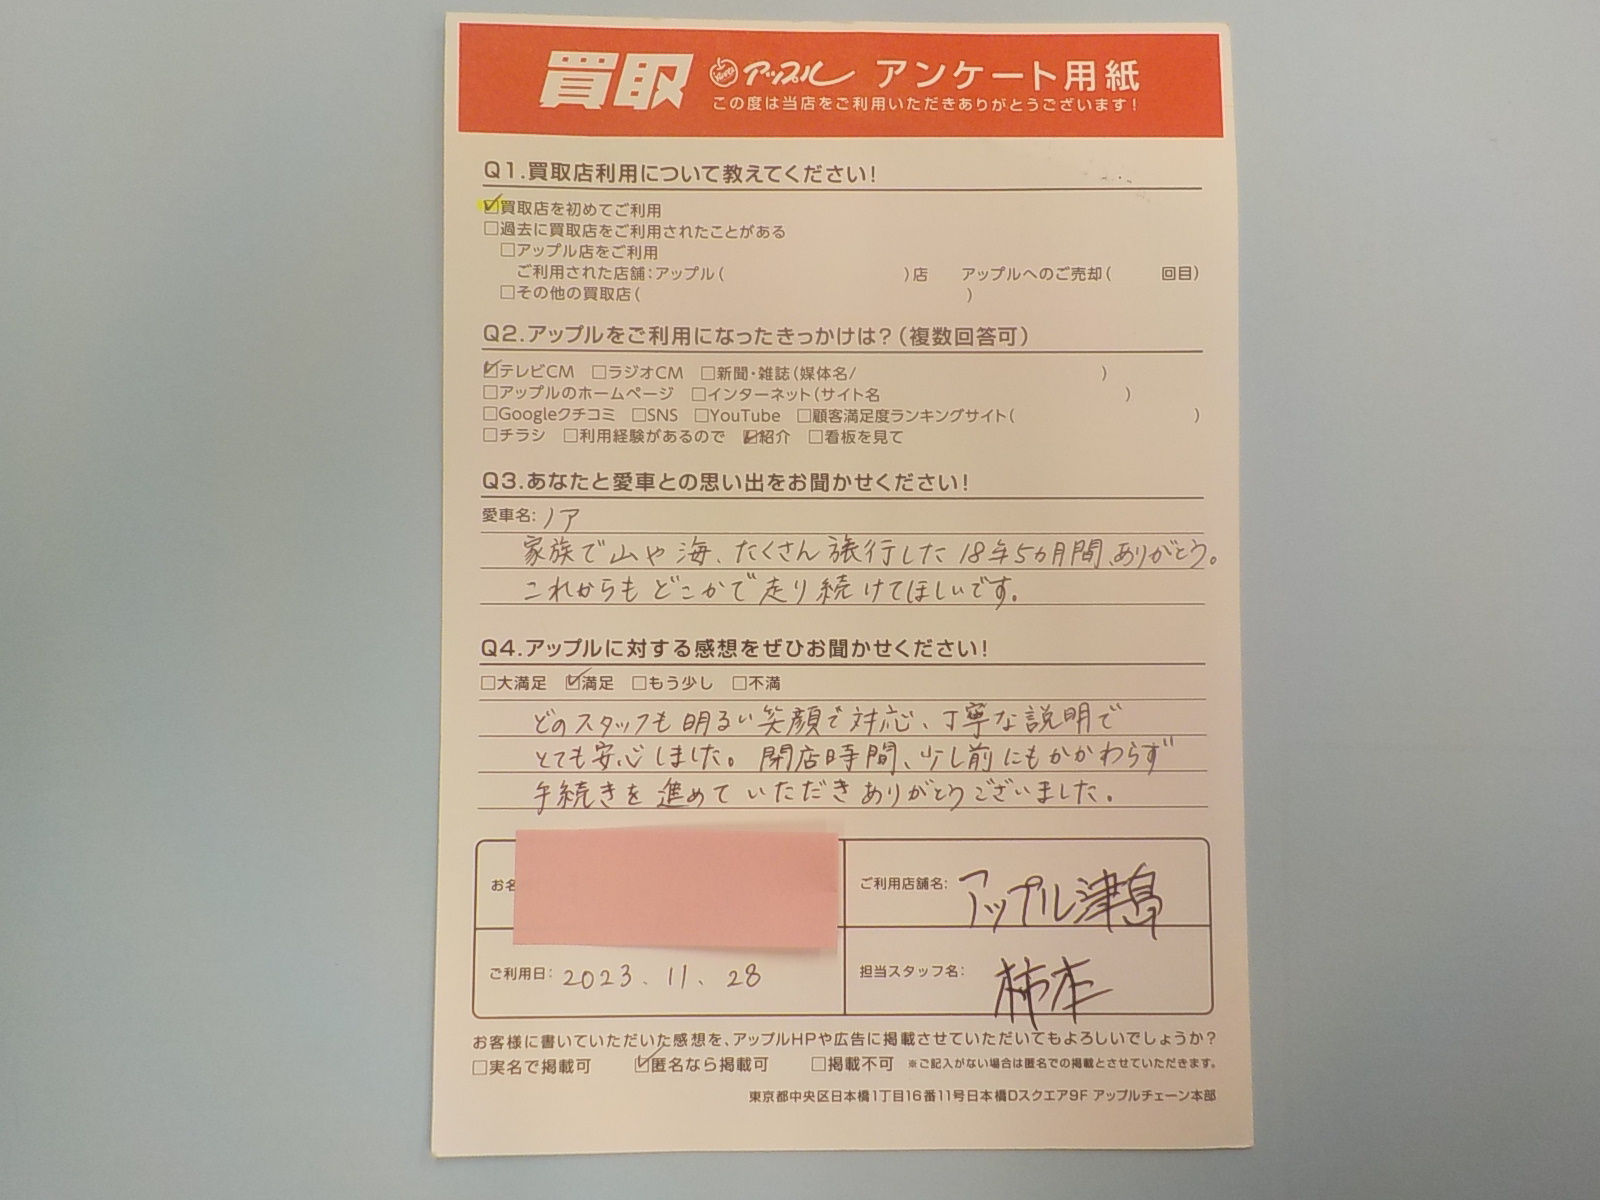 買取 アップル アンケート用紙
この度は当店をご利用いただきありがとうございます!
Q1.買取店利用について教えてください!
☑買取店を初めてご利用
□過去に買取店をご利用されたことがある
□アップル店をご利用
ご利用された店舗:アップル( )店 アップルへのご売却( 回目)
□その他の買取店( )
Q2.アップルをご利用になったきっかけは?(複数回答可)
☑テレビCM □ラジオCM □新聞・雑誌(媒体名/ )
□アップルのホームページ □インターネット(サイト名 )
□Googleクチコミ □SNS □YouTube □顧客満足度ランキングサイト( )
□チラシ □利用経験があるので ☑紹介 □看板を見て
Q3.あなたと愛車との思い出をお聞かせください!
愛車名:ノア
家族で山や海、たくさん旅行した18年5ヵ月間、ありがとう。
これからもどこかで走り続けてほしいです。
Q4.アップルに対する感想をぜひお聞かせください!
□大満足 ☑満足 □もう少し □不満
どのスタッフも明るい笑顔で対応、丁寧な説明で
とても安心しました。閉店時間、少し前にもかかわらず
手続きを進めていただきありがとうございました。
お名
ご利用店舗名:アップル津島
ご利用日:2023.11.28
担当スタッフ名:柿本
お客様に書いていただいた感想を、アップルHPや広告に掲載させていただいてもよろしいでしょうか?
□実名で掲載可 ☑匿名なら掲載可 □掲載不可 ※ご記入がない場合は匿名での掲載とさせていただきます。
東京都中央区日本橋1丁目16番11号日本橋Dスクエア9F アップルチェーン本部